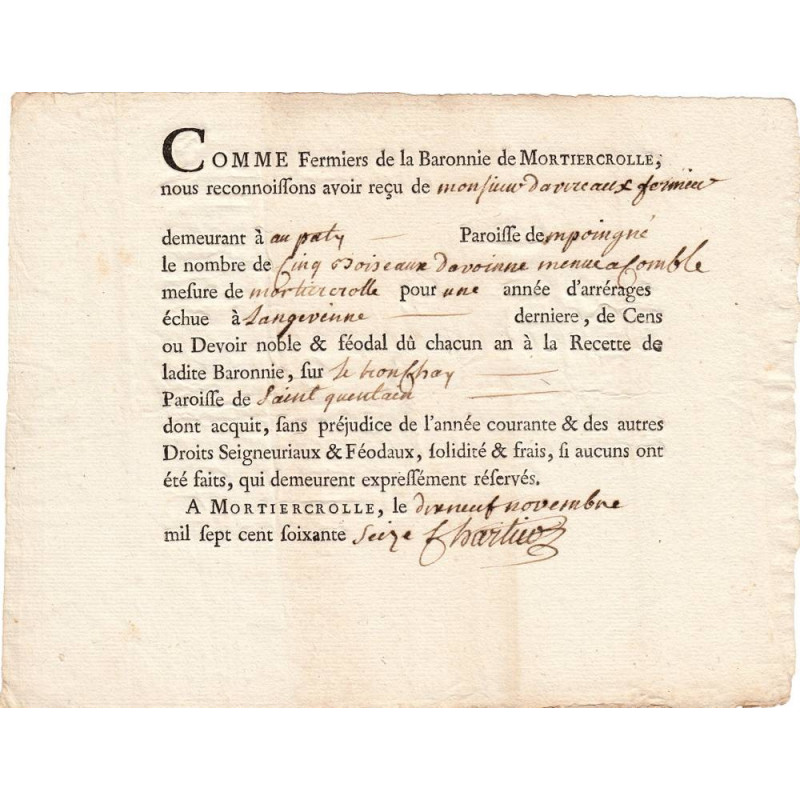 COMME Fermiers de la Baronnie de MORTIERCROLLE,
nous reconnoiſſons avoir reçu de monsieur davireaux fermier
demeurant à au paty — Paroiſſe de mpoingné
le nombre de Cinq Boiseaux davoinne menue a Comble
meſure de mortiercrolle pour une année d'arrérages
échue à Langevinne — derniere, de Cens
ou Devoir noble & féodal dû chacun an à la Recette de
ladite Baronnie, ſur le tronchay —
Paroiſſe de Saint quentain —
dont acquit, ſans préjudice de l'année courante & des autres
Droits Seigneuriaux & Féodaux, ſolidité & frais, ſi aucuns ont
été faits, qui demeurent expreſſément réſervés.
A MORTIERCROLLE, le dixneuf novembre
mil ſept cent ſoixante Seize Chartier